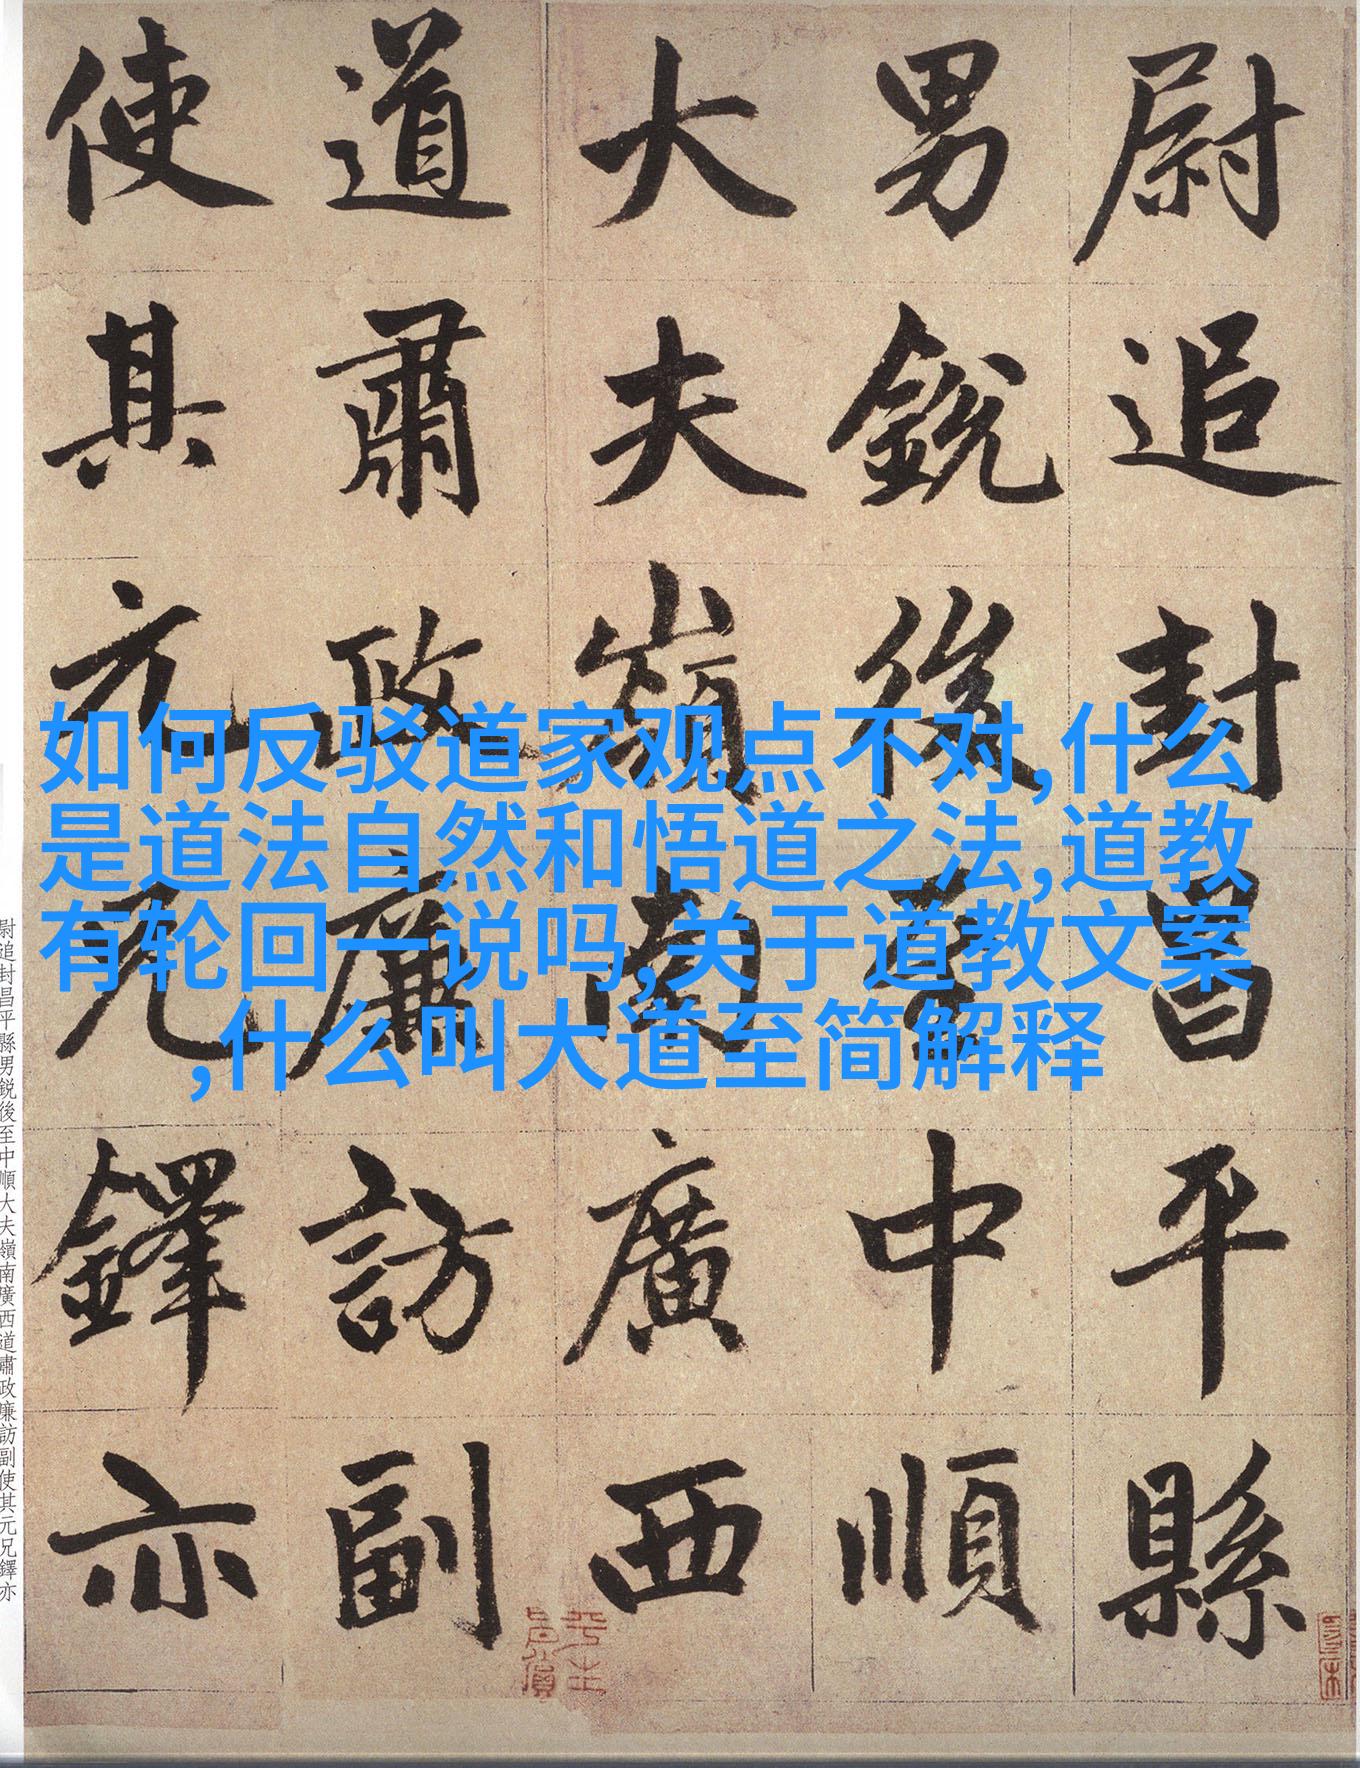 尉追封昌平縣
男銳後至中順
大夫嶺南廣西
道肅政廉訪副
使其元兄鐸亦
如何反驳道家观点不对,什么
是道法自然和悟道之法,道教
有轮回一说吗,关于道教文案
,什么叫大道至简解释
尉追封昌平縣男銳後至中順大夫嶺南廣西道肅政廉訪副使其元兄鐸亦